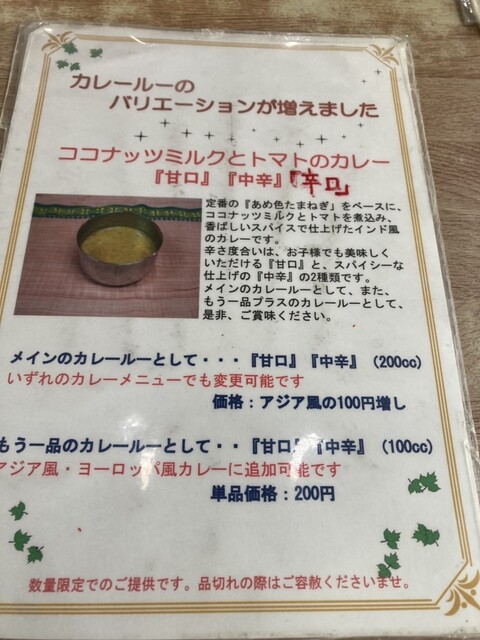 カレールーの
バリエーションが増えました
ココナッツミルクとトマトのカレー
『甘口』『中辛』『辛口』
定番の『あめ色たまねぎ』をベースに、
ココナッツミルクとトマトを煮込み、
香ばしいスパイスで仕上げたインド風
のカレーです。
辛さ度合いは、お子様でも美味しく
いただける『甘口』と、スパイシーな
仕上げの『中辛』の2種類です。
メインのカレールーとして、また、
もう一品プラスのカレールーとして、
是非、ご賞味ください。
メインのカレールーとして・・・『甘口』『中辛』（200cc）
いずれのカレーメニューでも変更可能です
価格：アジア風の100円増し
もう一品のカレールーとして・・『甘口』『中辛』（100cc）
アジア風・ヨーロッパ風カレーに追加可能です
単品価格：200円
数量限定でのご提供です。品切れの際はご容赦くださいませ。